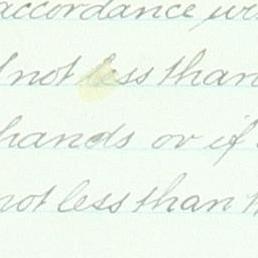 accordance
not less than
hands or if
not less than